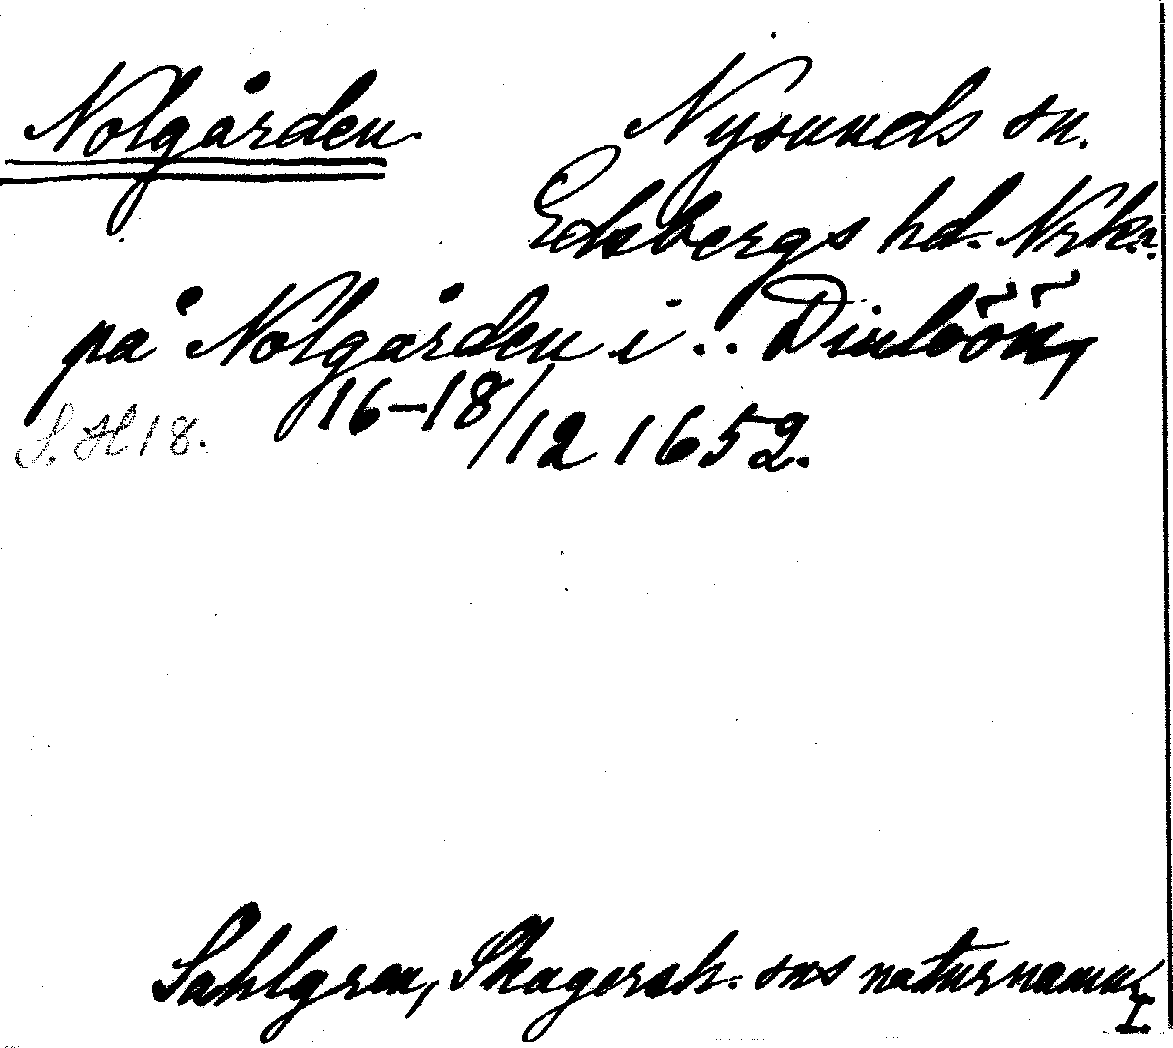 Nolgården Nysunds sn.
Edsbergs hd. Nrke.
på Nolgården i . . Dinlöön,
S. H 18. 16-18/12 1652.
Sahlgren, Skagersh. sns naturnamn
I.